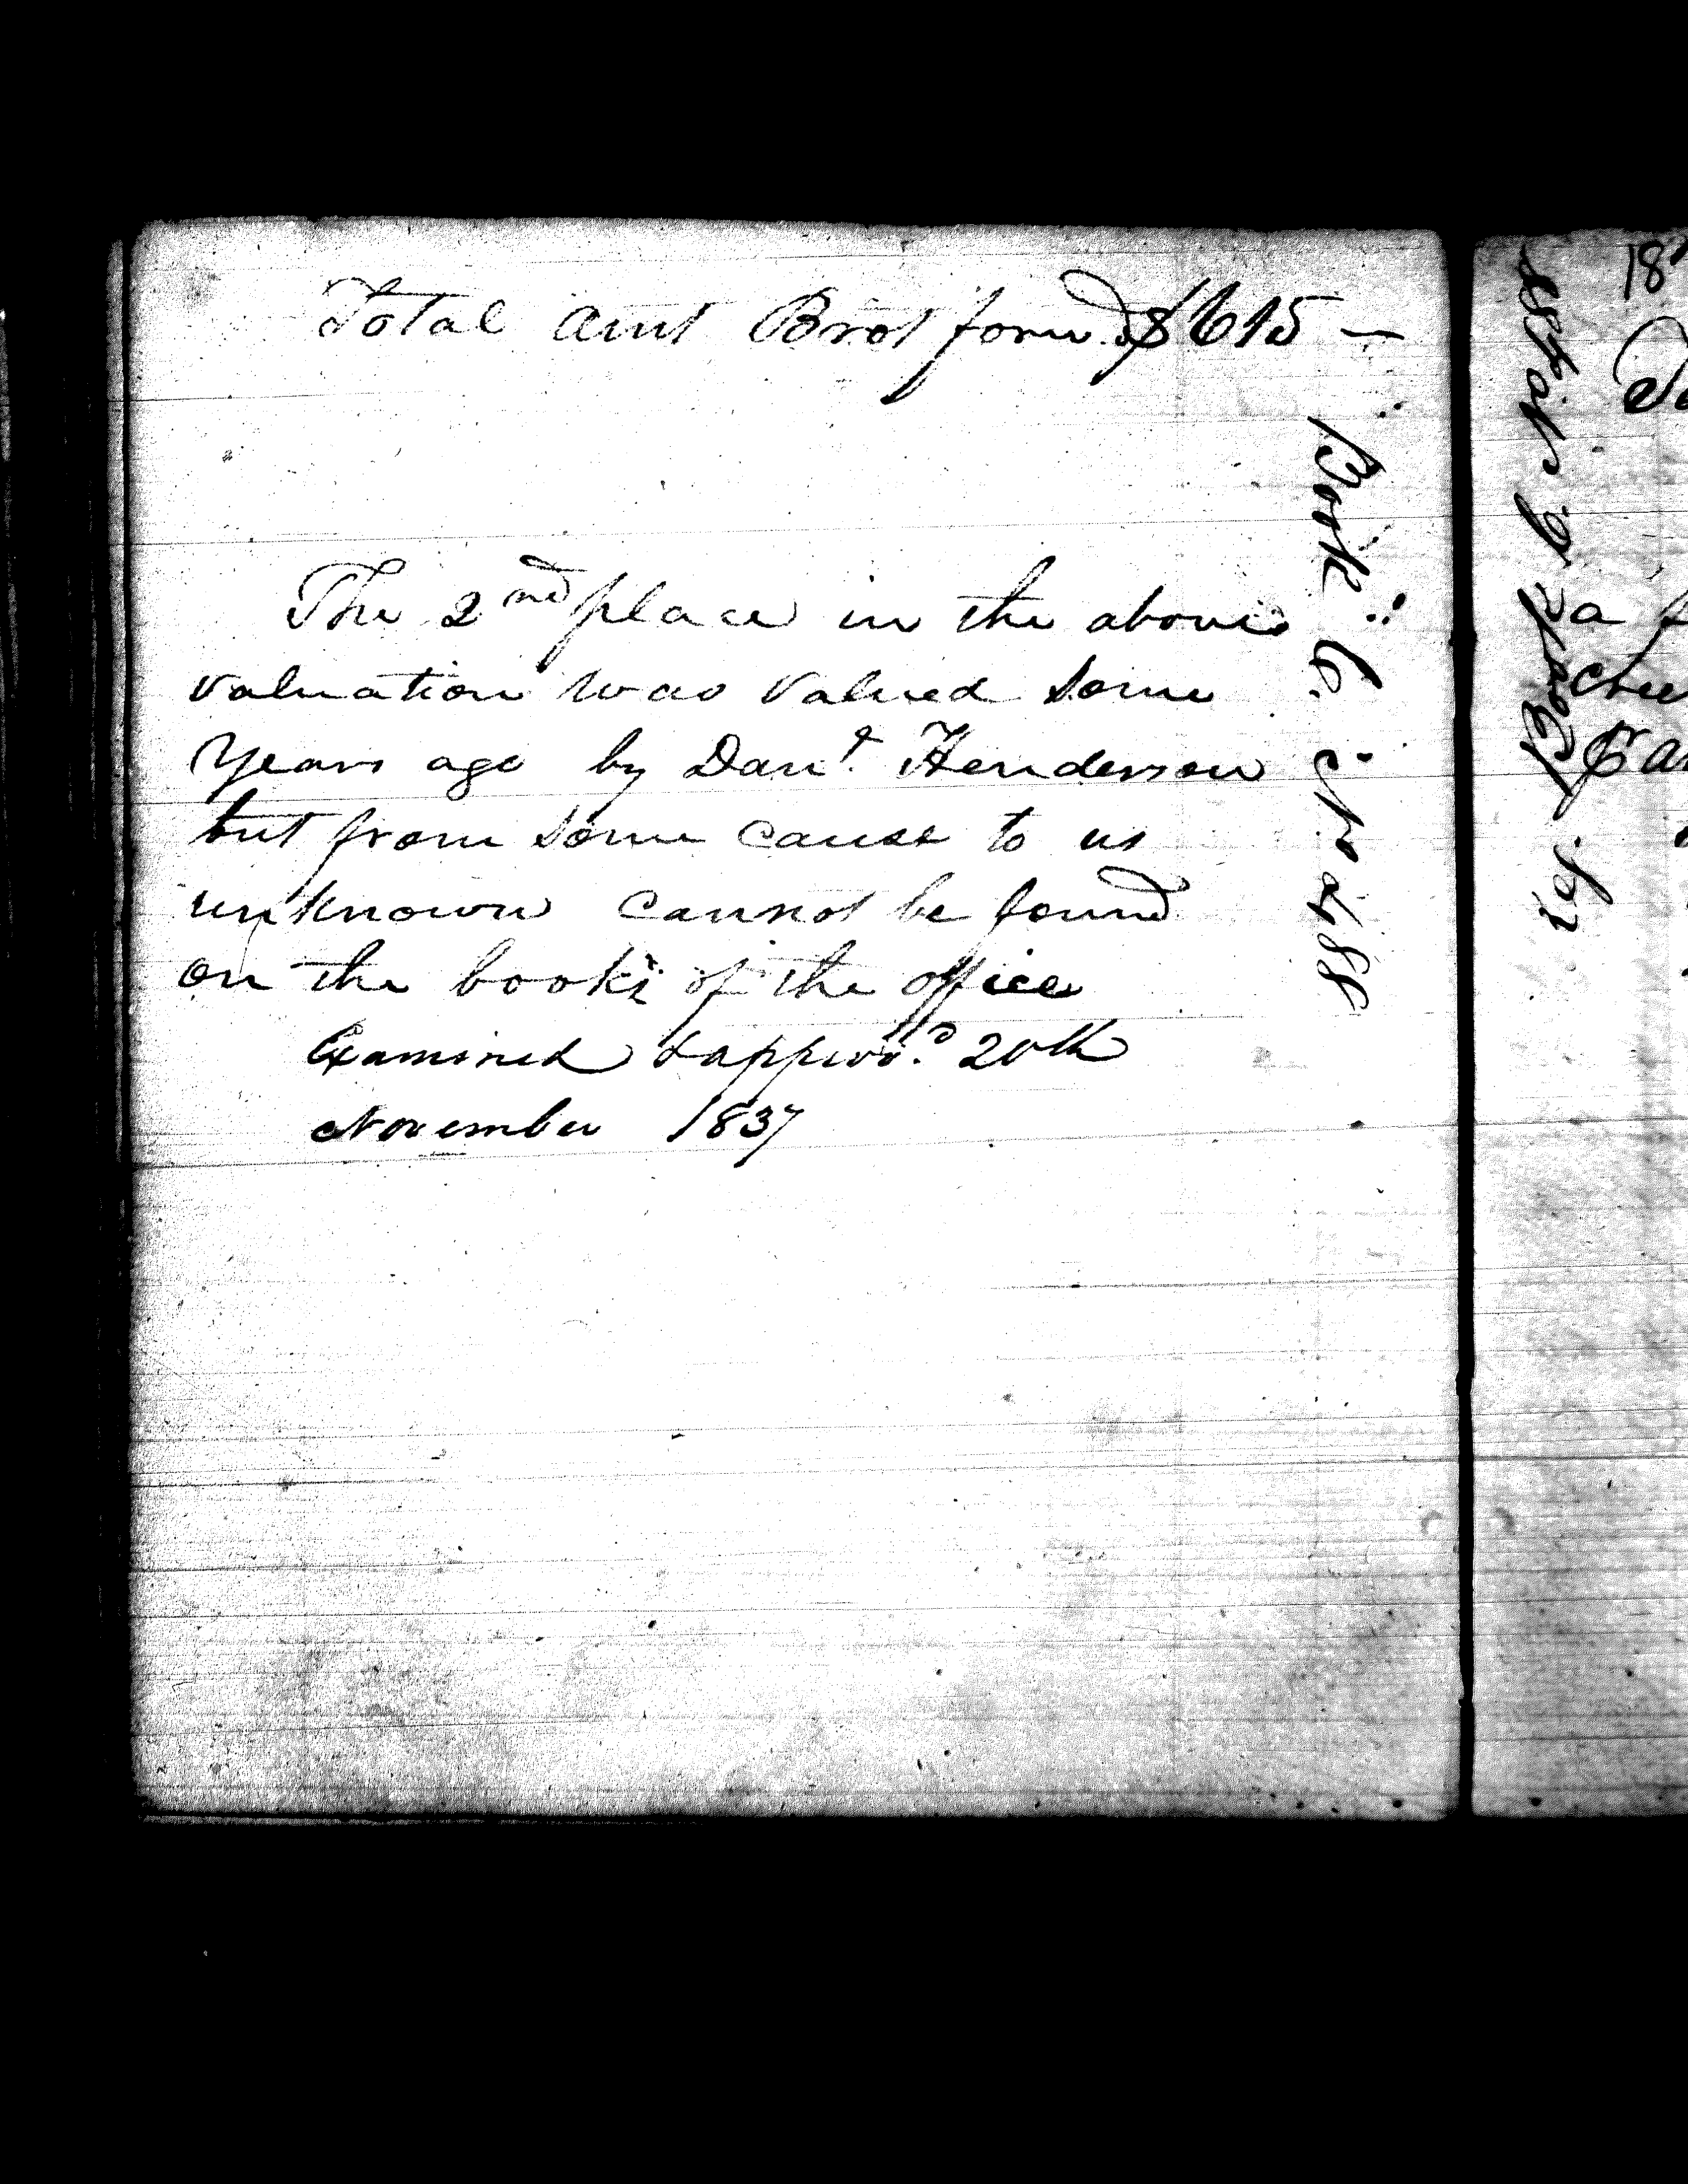 Total Amt Brot forwd $615 —
The 2nd place in the above
valuation was valued some
Years ago by Danl. Henderson
but from some cause to us
unknown cannot be found
on the books of the office
Examined & approvd. 20th
November 1837
Book C. No 488
Book C No. 488
18
a